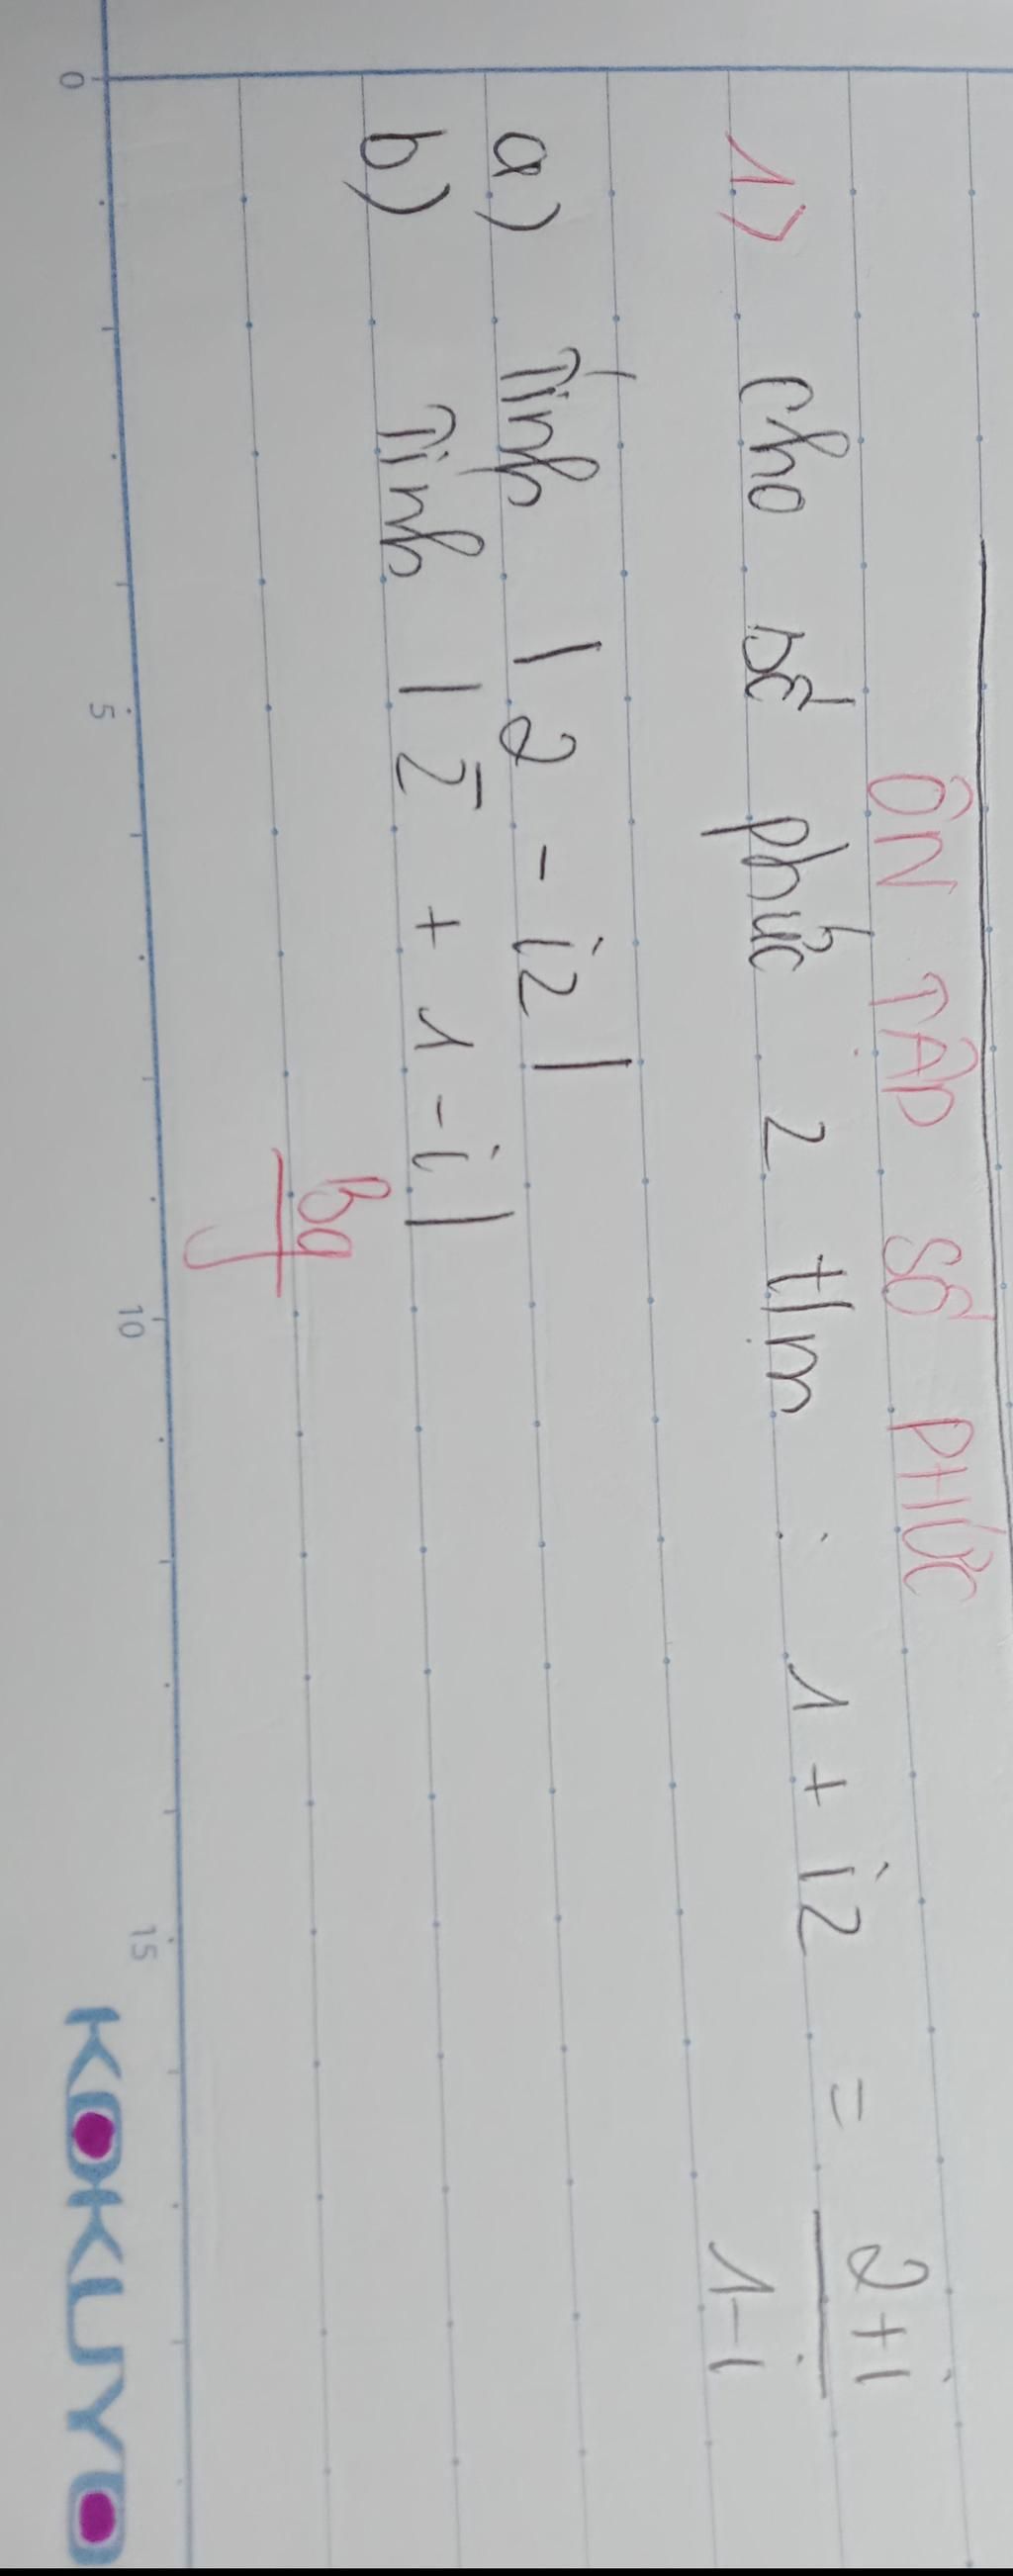 ÔN TẬP SỐ PHỨC
1) Cho số phức z t/m : 1 + iz = \frac{2+i}{1-i}
a) Tính | 2 - iz |
b) Tính | z̄ + 1 - i |
bg
0 5 10 15 KOKUYO